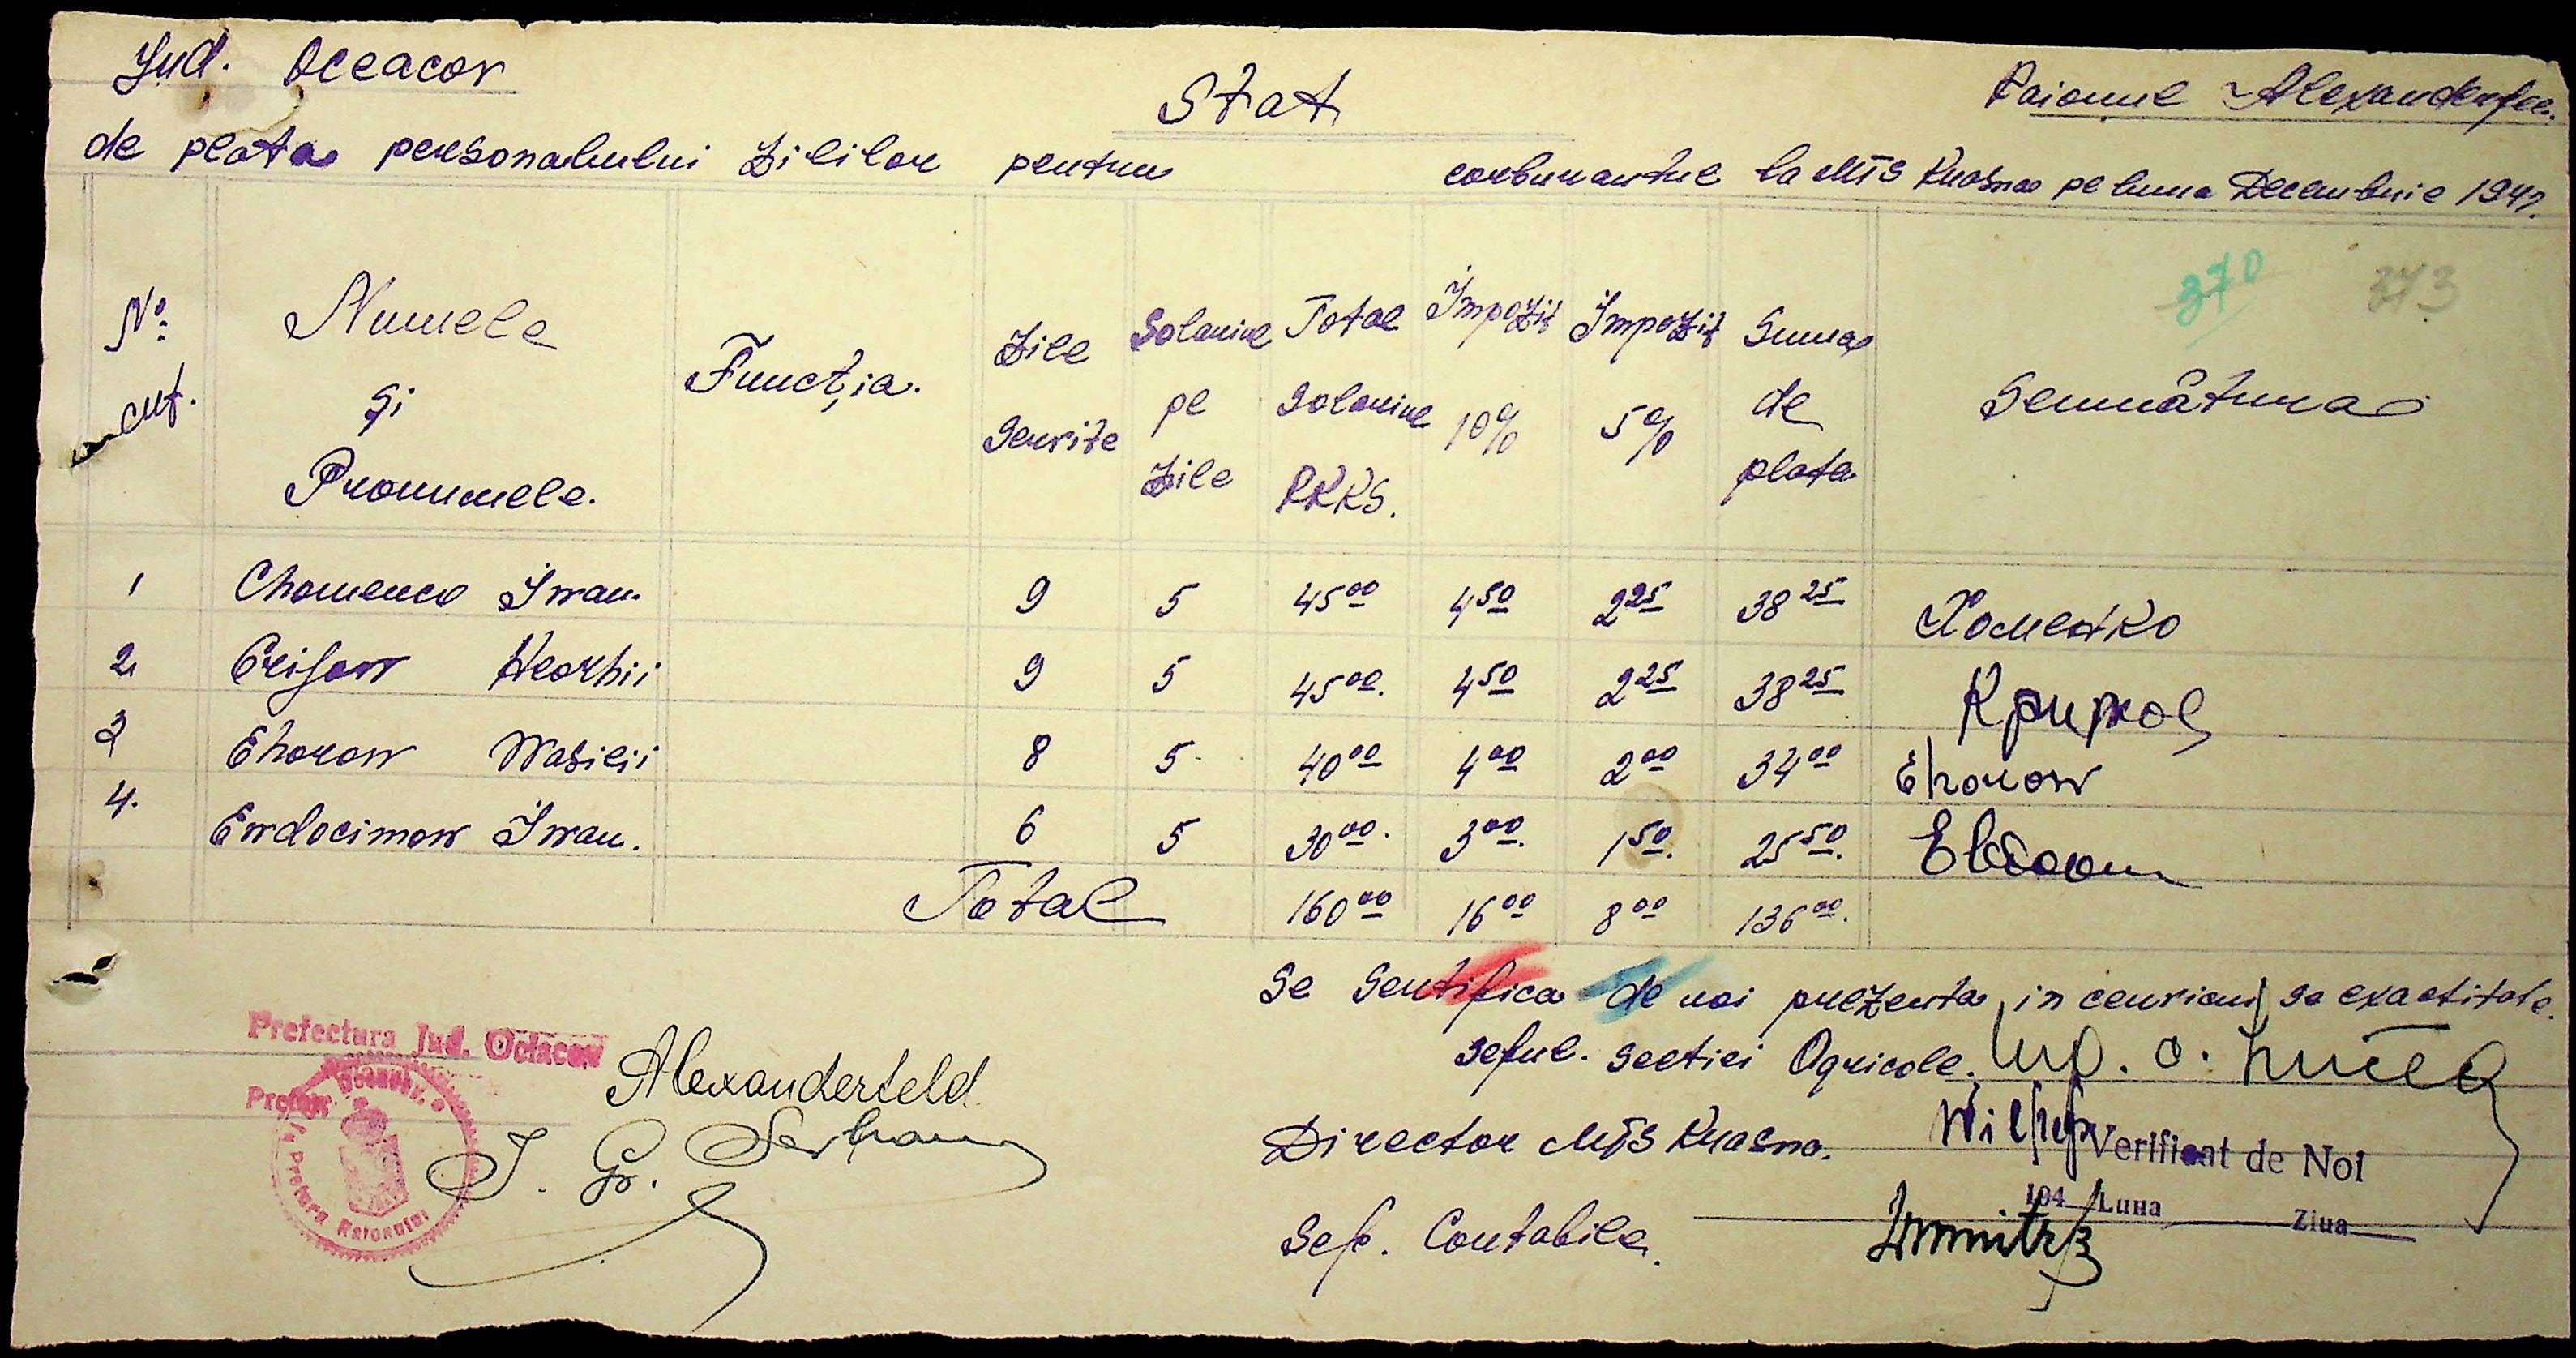 Jud. Oceacov
Stat
Raionul Alexanderfeld.
de plata personalului Zililor pentru corburantul la MTS Krasna pe luna Decembrie 1942.
370 373
No: crt.
Numele și Pronumele.
Funcția.
Zile Servite
Solariul pe Zile
Total Solariul RKKS.
Impozit 10%
Impozit 5%
Suma de plata
Semnătura
1 Chomenco Iwan. 9 5 45 00 4 50 2 25 38 25 Хоменко
2 Crijow Heorhii 9 5 45 00. 4 50 2 25 38 25 Крижов
3 Ehorow Wasilii 8 5 40 00 4 00 2 00 34 00 Ehorow
4. Ewdocimow Iwan. 6 5 30 00. 3 00. 1 50. 25 50.
Total 160 00 16 00 8 00 136 00.
Se Sertifica de noi prezenta in
Seful. Sectiei Agricole.
Director MTS Krasna.
Sef. Contabile.
Prefectura Jud. Oceacov
Alexanderfeld
Pretura Raionului
Verificat de Noi
194 Luna Ziua